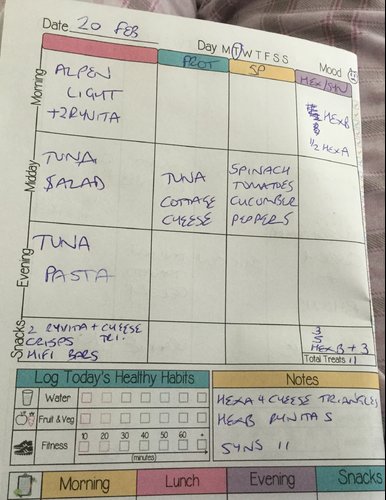 Date 20 FEB
Day M T W T F S S
Mood
PROT
SP
HEX/SYN
Morning
ALPEN
LIGHT
+2 RYVITA
HEXB
½ HEXA
Midday
TUNA
SALAD
TUNA
COTTAGE
CHEESE
SPINACH
TOMATOES
CUCUMBER
PEPPERS
Evening
TUNA
PASTA
Snacks
2 RYVITA + CHEESE
TRI.
CRISPS
HIFI BARS
3
5
HEXB + 3
Total Treats 11
Log Today's Healthy Habits
Water
Fruit & Veg
Fitness
10 20 30 40 50 60 +
(minutes)
Notes
HEXA 4 CHEESE TRIANGLES
HEXB RYVITA 5
SYNS 11
Morning
Lunch
Evening
Snacks